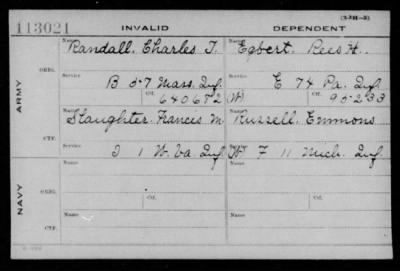 (3-311-a)
113021
INVALID DEPENDENT
ARMY
ORIG.
Name Randall, Charles T. Name Egbert, Rees H.
Service B 57 Mass. Inf. Service E 74 Pa. Inf.
Ctf. 640672 (W) Ctf. 95233
CTF.
Name Slaughter, Francis M. Name Russell, Emmons
I 1 W. Va Inf (W) F 11 Mich. Inf.
NAVY
ORIG.
Name Name
Service Ctf. Service Ctf.
CTF.
Name Name